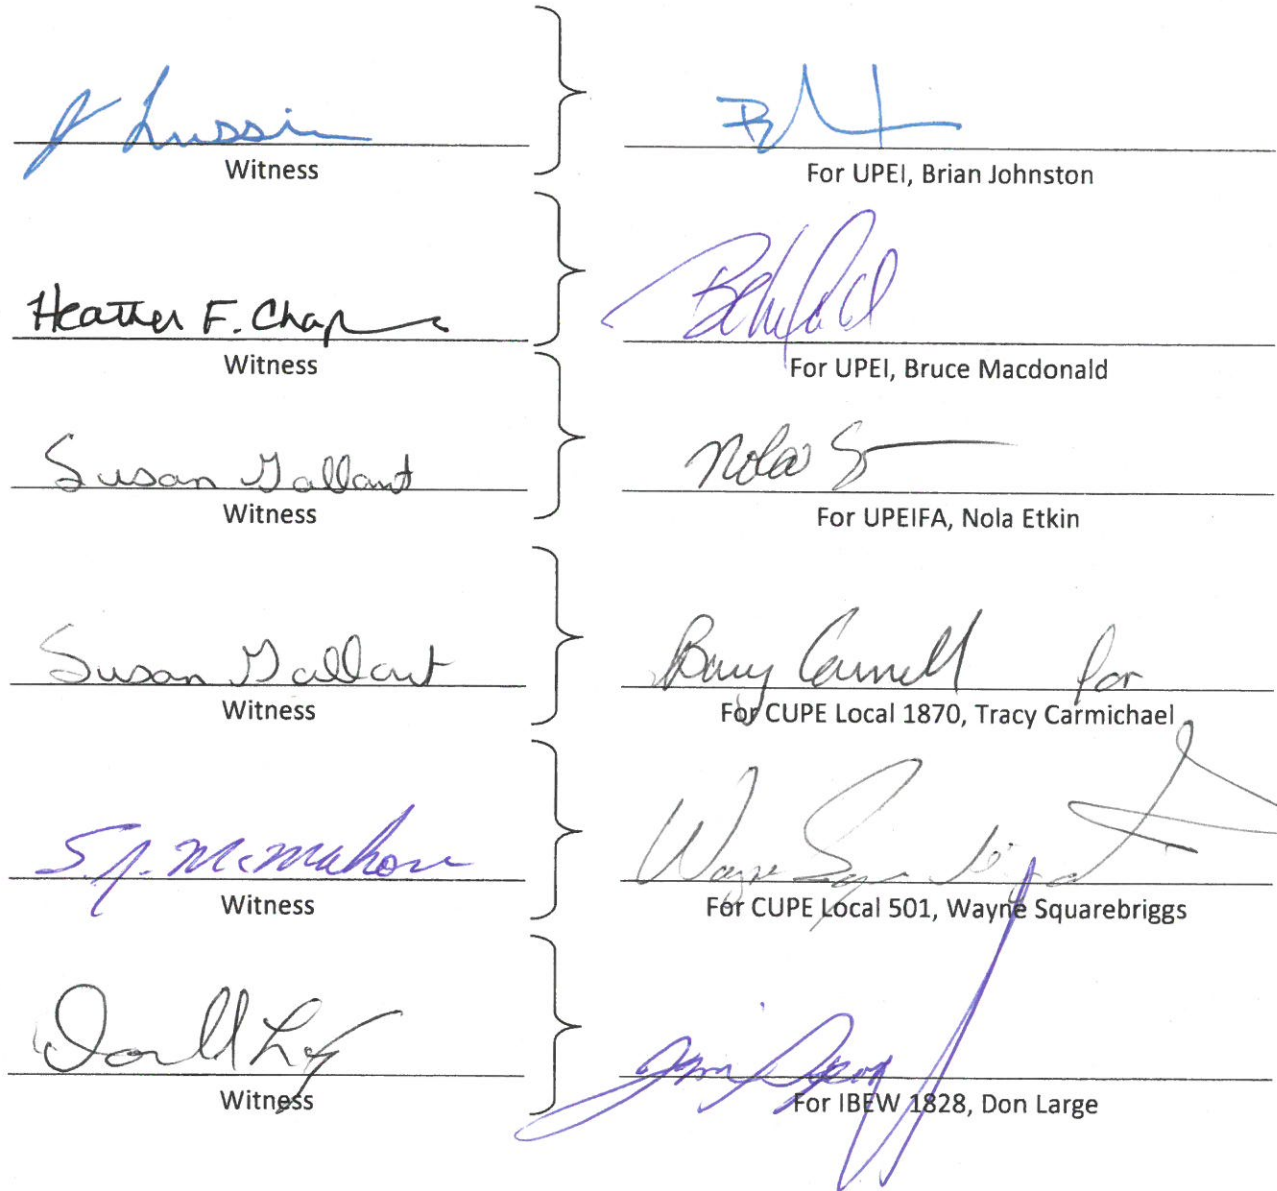 Witness
For UPEI, Brian Johnston
Heather F.
Witness
For UPEI, Bruce Macdonald
Susan Gallant
Nola
Witness
For UPEIFA, Nola Etkin
Susan Gallant
for
Witness
For CUPE Local 1870, Tracy Carmichael
S.J. McMahon
Wayne
Witness
For CUPE Local 501, Wayne Squarebriggs
Witness
For IBEW 1828, Don Large